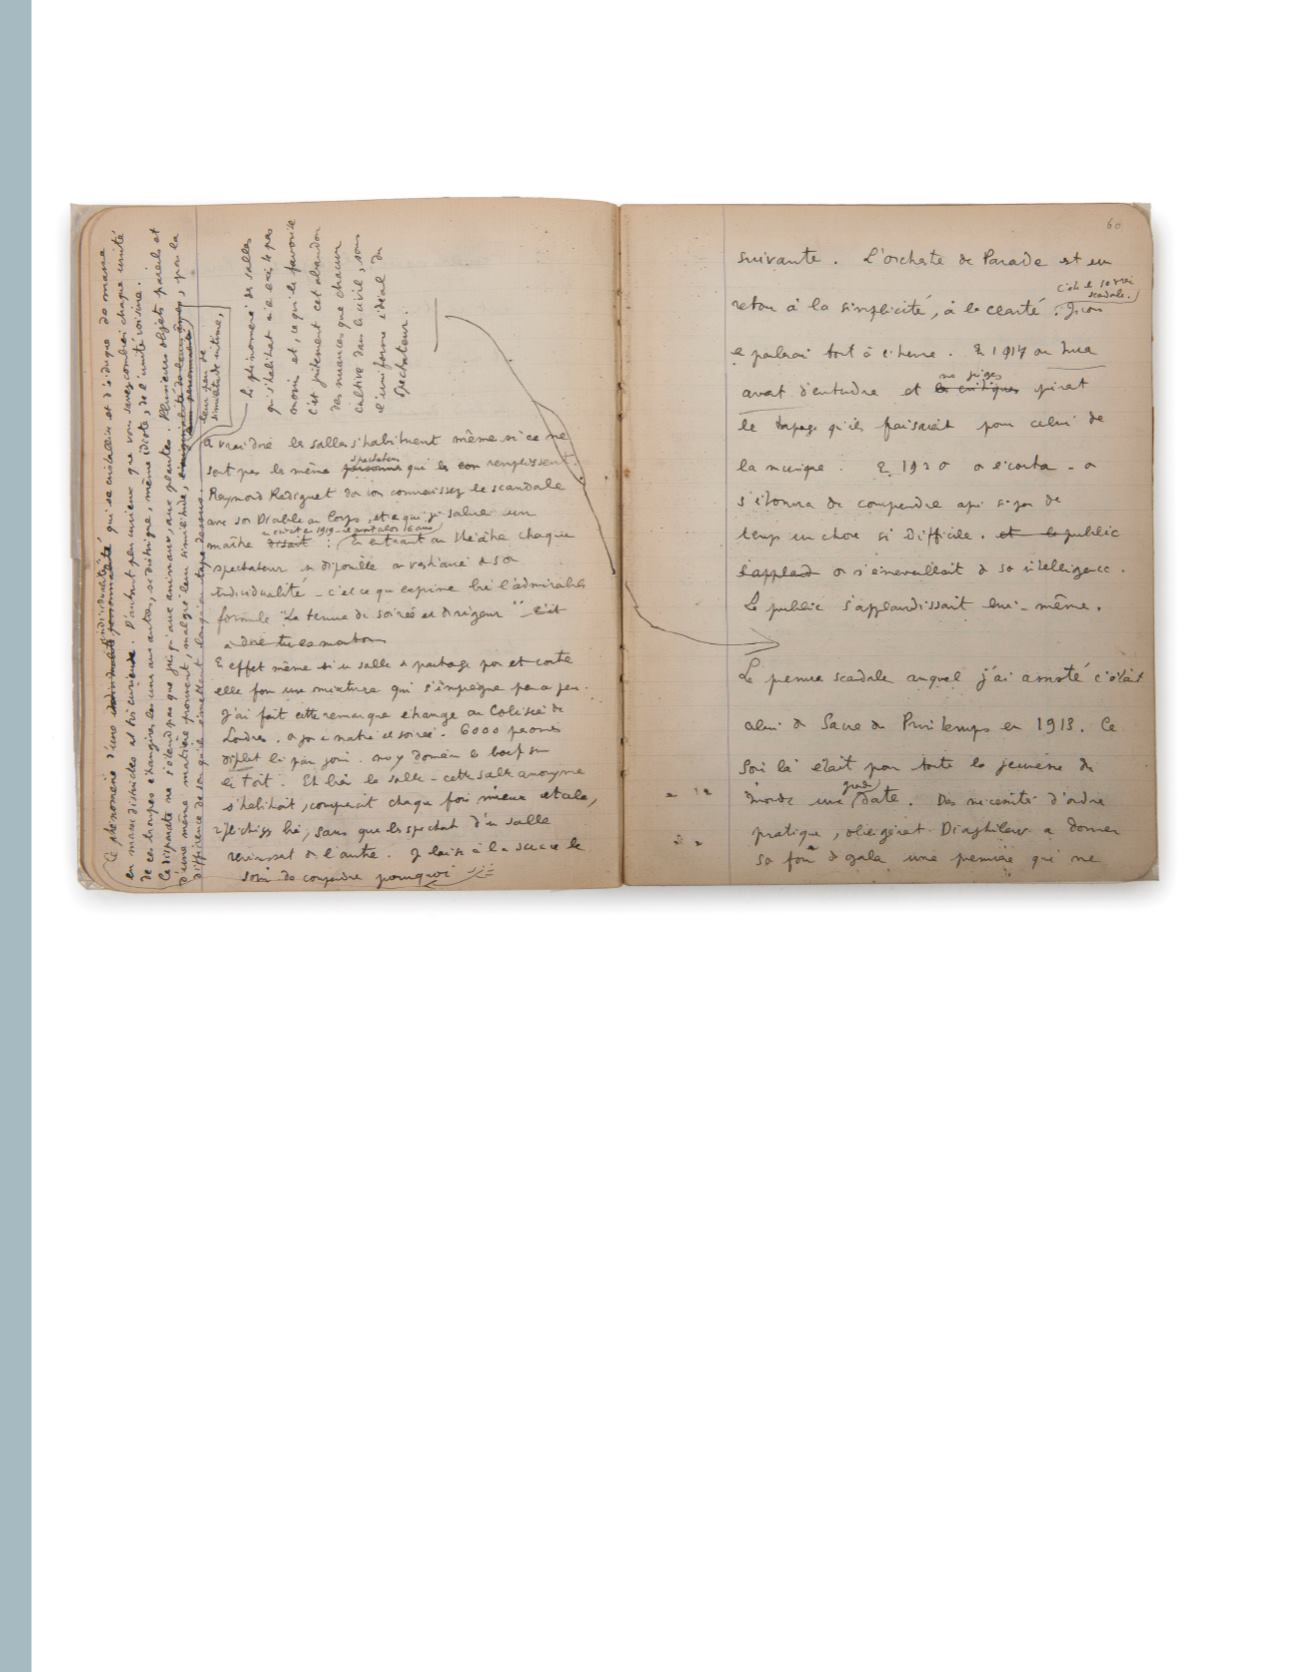 Le phénomène des salles
qui s'habituent n'a existé pas
moins et, ce qui le favorise
c'est justement cet abandon
des nuances que chacun
cultive dans le civil, sous
l'uniforme idéal du
spectateur.
leur peu de
similitude intime,
Ce phénomène d'une individualité qui se cristallise et
en masses distinctes est très curieux. D'autant plus curieux que vous savez combien chaque unité
de ces troupes étrangères les unes aux autres, se distingue, même idiote, de l'unité voisine.
Ce disparate ne s'étend pas que jusqu'aux animaux, aux plantes. Plusieurs objets pareils et
d'une même matière prouvent, malgré leur similitude, par la
différence de son qu'ils émettent lorsqu'on tape dessus.
A vrai dire les salles s'habituent même si ce ne
sont pas les même spectateurs qui les remplissent.
Raymond Radiguet dont vous connaissez le scandale
avec son Diable au Corps, et en qui je salue un
maître disait : En entrant au théâtre chaque
spectateur se dépouille au vestiaire de son
individualité - c'est ce qu'exprime bien l'admirable
formule "La tenue de soirée est de rigueur"
En effet même si une salle a partagé pour et contre
elle forme une mixture qui s'imprègne peu a peu.
J'ai fait cette remarque étrange au Colisée de
Londres. On joue en matinée et soirée. 6000 personnes
défilent là par jour. On y donnait le bœuf sur
le Toit. Eh bien la salle - cette salle anonyme
s'habituait, comprenait chaque fois mieux et cela,
réfléchissez bien, sans que les spectateurs d'une salle
revinssent dans l'autre. Je laisse à la science le
soin de comprendre pourquoi
60
suivante. L'orchestre de Parade est un
c'est le vrai
scandale.
retour à la simplicité, à la clarté. J'en
parlerai tout à l'heure. En 1917 on hua
avant d'entendre et nos juges les critiques prirent
le tapage qu'ils faisaient pour celui de
la musique. En 1920 on écouta - on
s'étonna de comprendre après si peu de
temps une chose si difficile. et le public
s'applaudit on s'émerveillait de son intelligence.
Le public s'applaudissait lui-même.
Le premier scandale auquel j'ai assisté c'était
celui du Sacre du Printemps en 1913. Ce
soir là était pour toute la jeunesse du
monde une grande date. Des nécessités d'ordre
pratique, obligèrent Diaghilew a donner
sous forme de gala une première qui ne